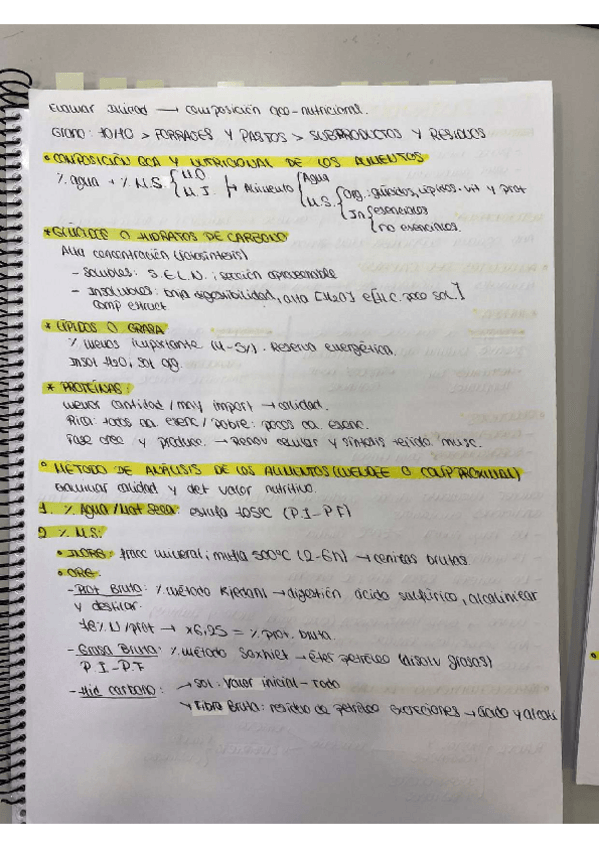 Evaluar calidad → composición qco-nutricional.
Grano: 70/70 > FORRAJES Y PASTOS > SUBPRODUCTOS Y RESIDUOS
• COMPOSICIÓN QCA Y NUTRICIONAL DE LOS ALIMENTOS
% agua + % M.S. { M.O M.I } Alimento { Agua M.S. { Org: glúcidos, lípidos, vit y prot
In { esenciales no esenciales.
* GLÚCIDOS O HIDRATOS DE CARBONO
Alta concentración (fotosíntesis)
- Solubles: S.E.L.N.; fracción aprovechable
- Insolubles: baja digestibilidad, alta [H2O] e [H.C. poco sol.]
comp estruct.
* LÍPIDOS O GRASA
% menos importante (4-5%). Reserva energética.
Insol H2O, sol org.
* PROTEÍNAS:
menor cantidad / may import → calidad.
Rica: todos aa esenc / pobre: pocos aa esenc.
Fase crec y produc. → Renov celular y síntesis tejido musc.
• MÉTODO DE ANÁLISIS DE LOS ALIMENTOS (WEENDE O COMP. PROXIMAL)
Examinar calidad y det valor nutritivo.
1. % Agua / Mat Seca: estufa 105ºC (P.I-P.F)
2 % M.S:
• INORG: fracc mineral; mufla 500ºC (2-6h) → cenizas brutas.
• ORG.
- Prot Bruta: % método Kjeldahl → digestión ácido sulfúrico, alcalinizar
y destilar.
16% N/prot → x6,25 = % prot. bruta.
- Grasa Bruta: % método Soxhlet → éter petróleo (disolv grasas)
P.I-P.F
- Hid carbono: → Sol: Valor inicial - Todo
→ Fibra Bruta: residuo de petróleo → ácido y alcali